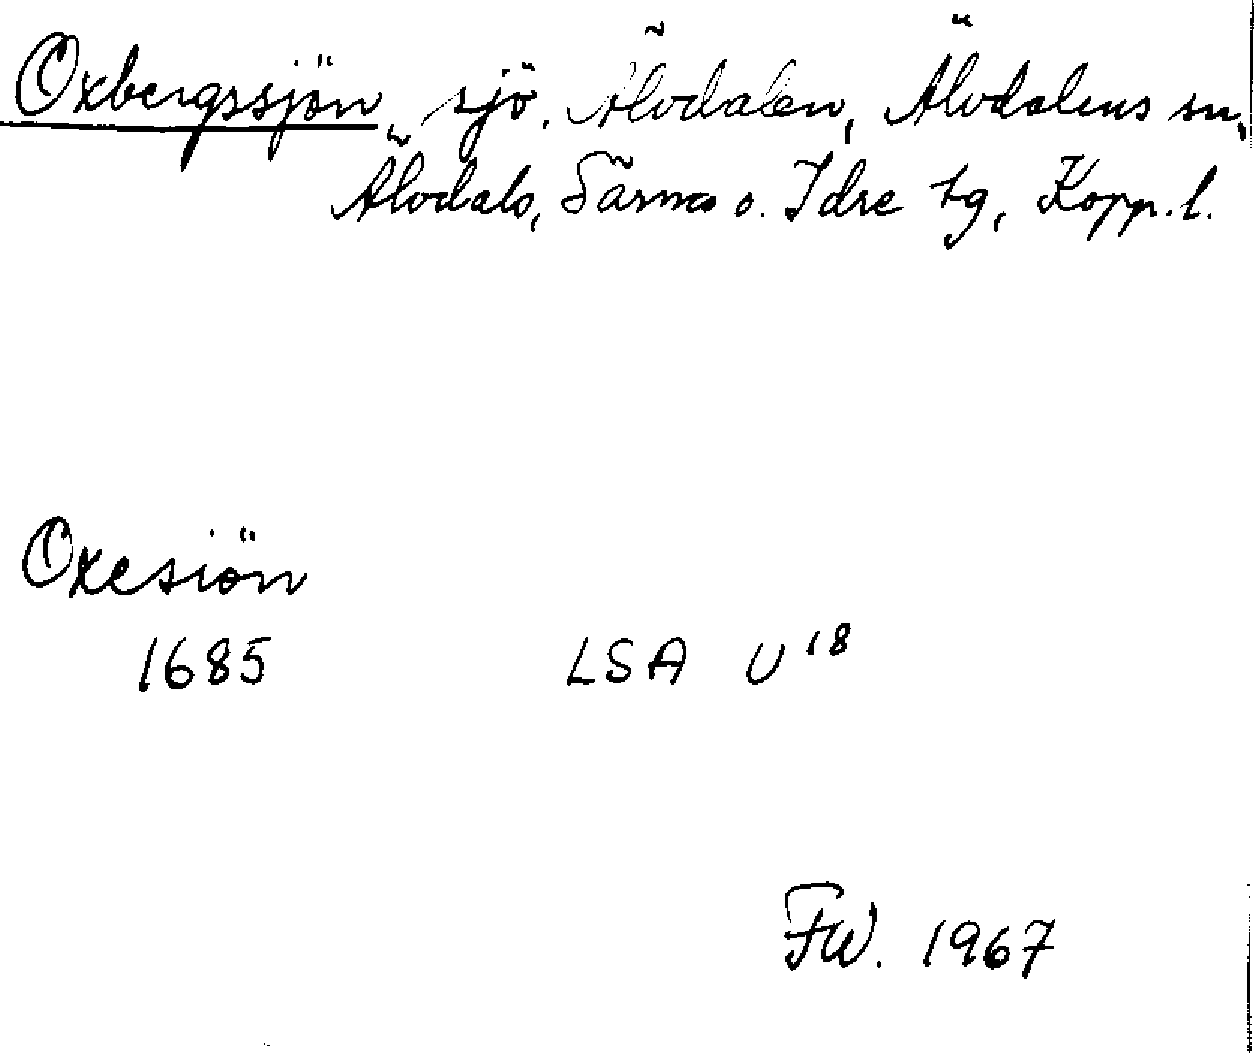 Oxbergssjön, sjö. Älvdalen, Älvdalens sn,
Älvdals, Särna o. Idre tg, Kopp. l.
Oxesiön
1685 LSA U¹⁸
FW. 1967